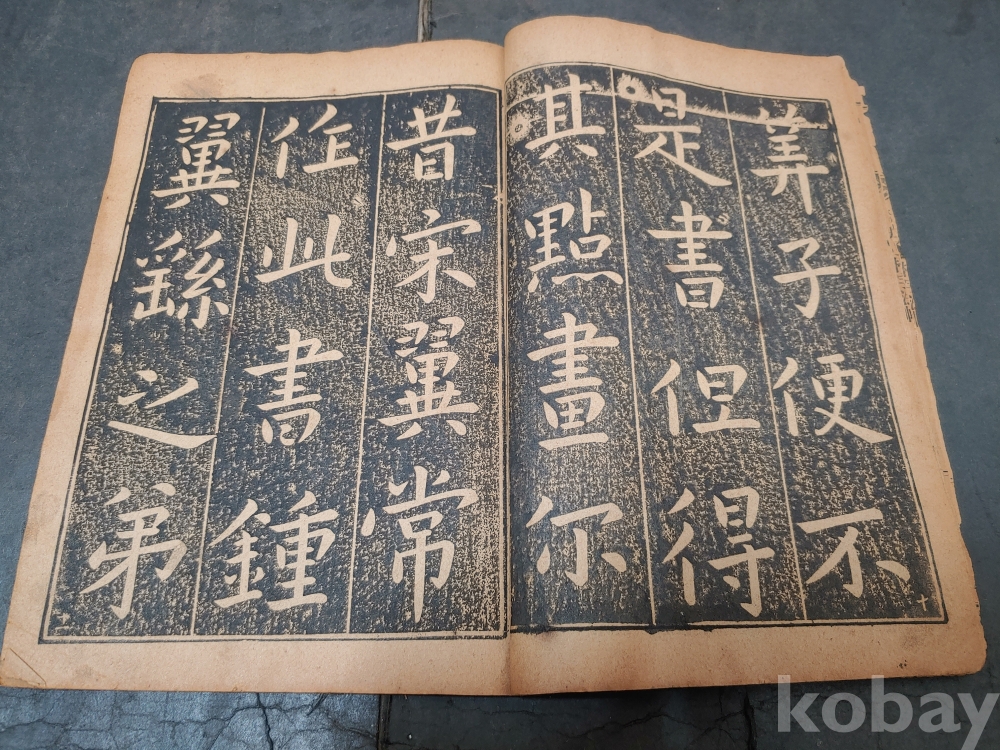 筭子便不
是書但得
其點畫尔
昔宋翼常
作此書鍾
翼繇之弟
十
kobay